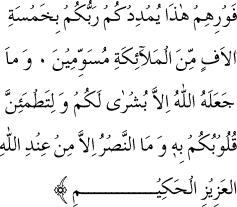 فَوْرِهِمْ هٰذَا يُمْدِدْكُمْ رَبُّكُمْ بِخَمْسَةِ
اٰلَافٍ مِّنَ الْمَلَآئِكَةِ مُسَوِّمِينَ ۰ وَ مَا
جَعَلَهُ اللهُ اِلاَّ بُشْرٰى لَكُمْ وَ لِتَطْمَئِنَّ
قُلُوبُكُمْ بِهٖ وَ مَا النَّصْرُ اِلاَّ مِنْ عِنْدِ اللهِ
الْعَزِيزِ الْحَكِيـــــــمِ ﴾